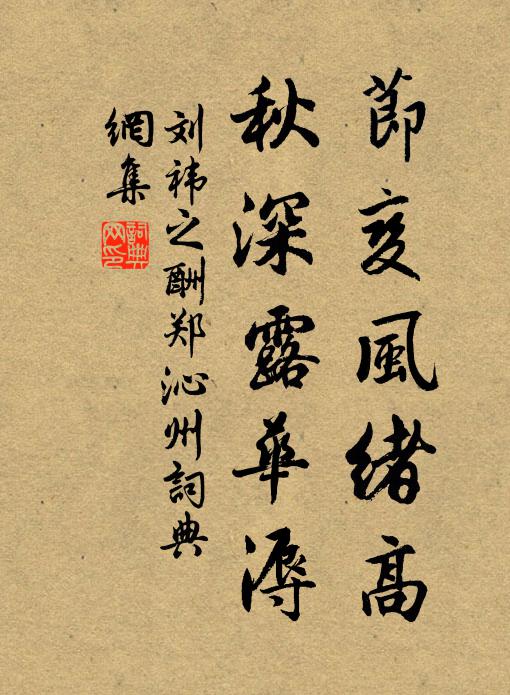 節变風緒高
秋深露華溽
刘祎之酬郑沁州詞典
網集
詞典
网印